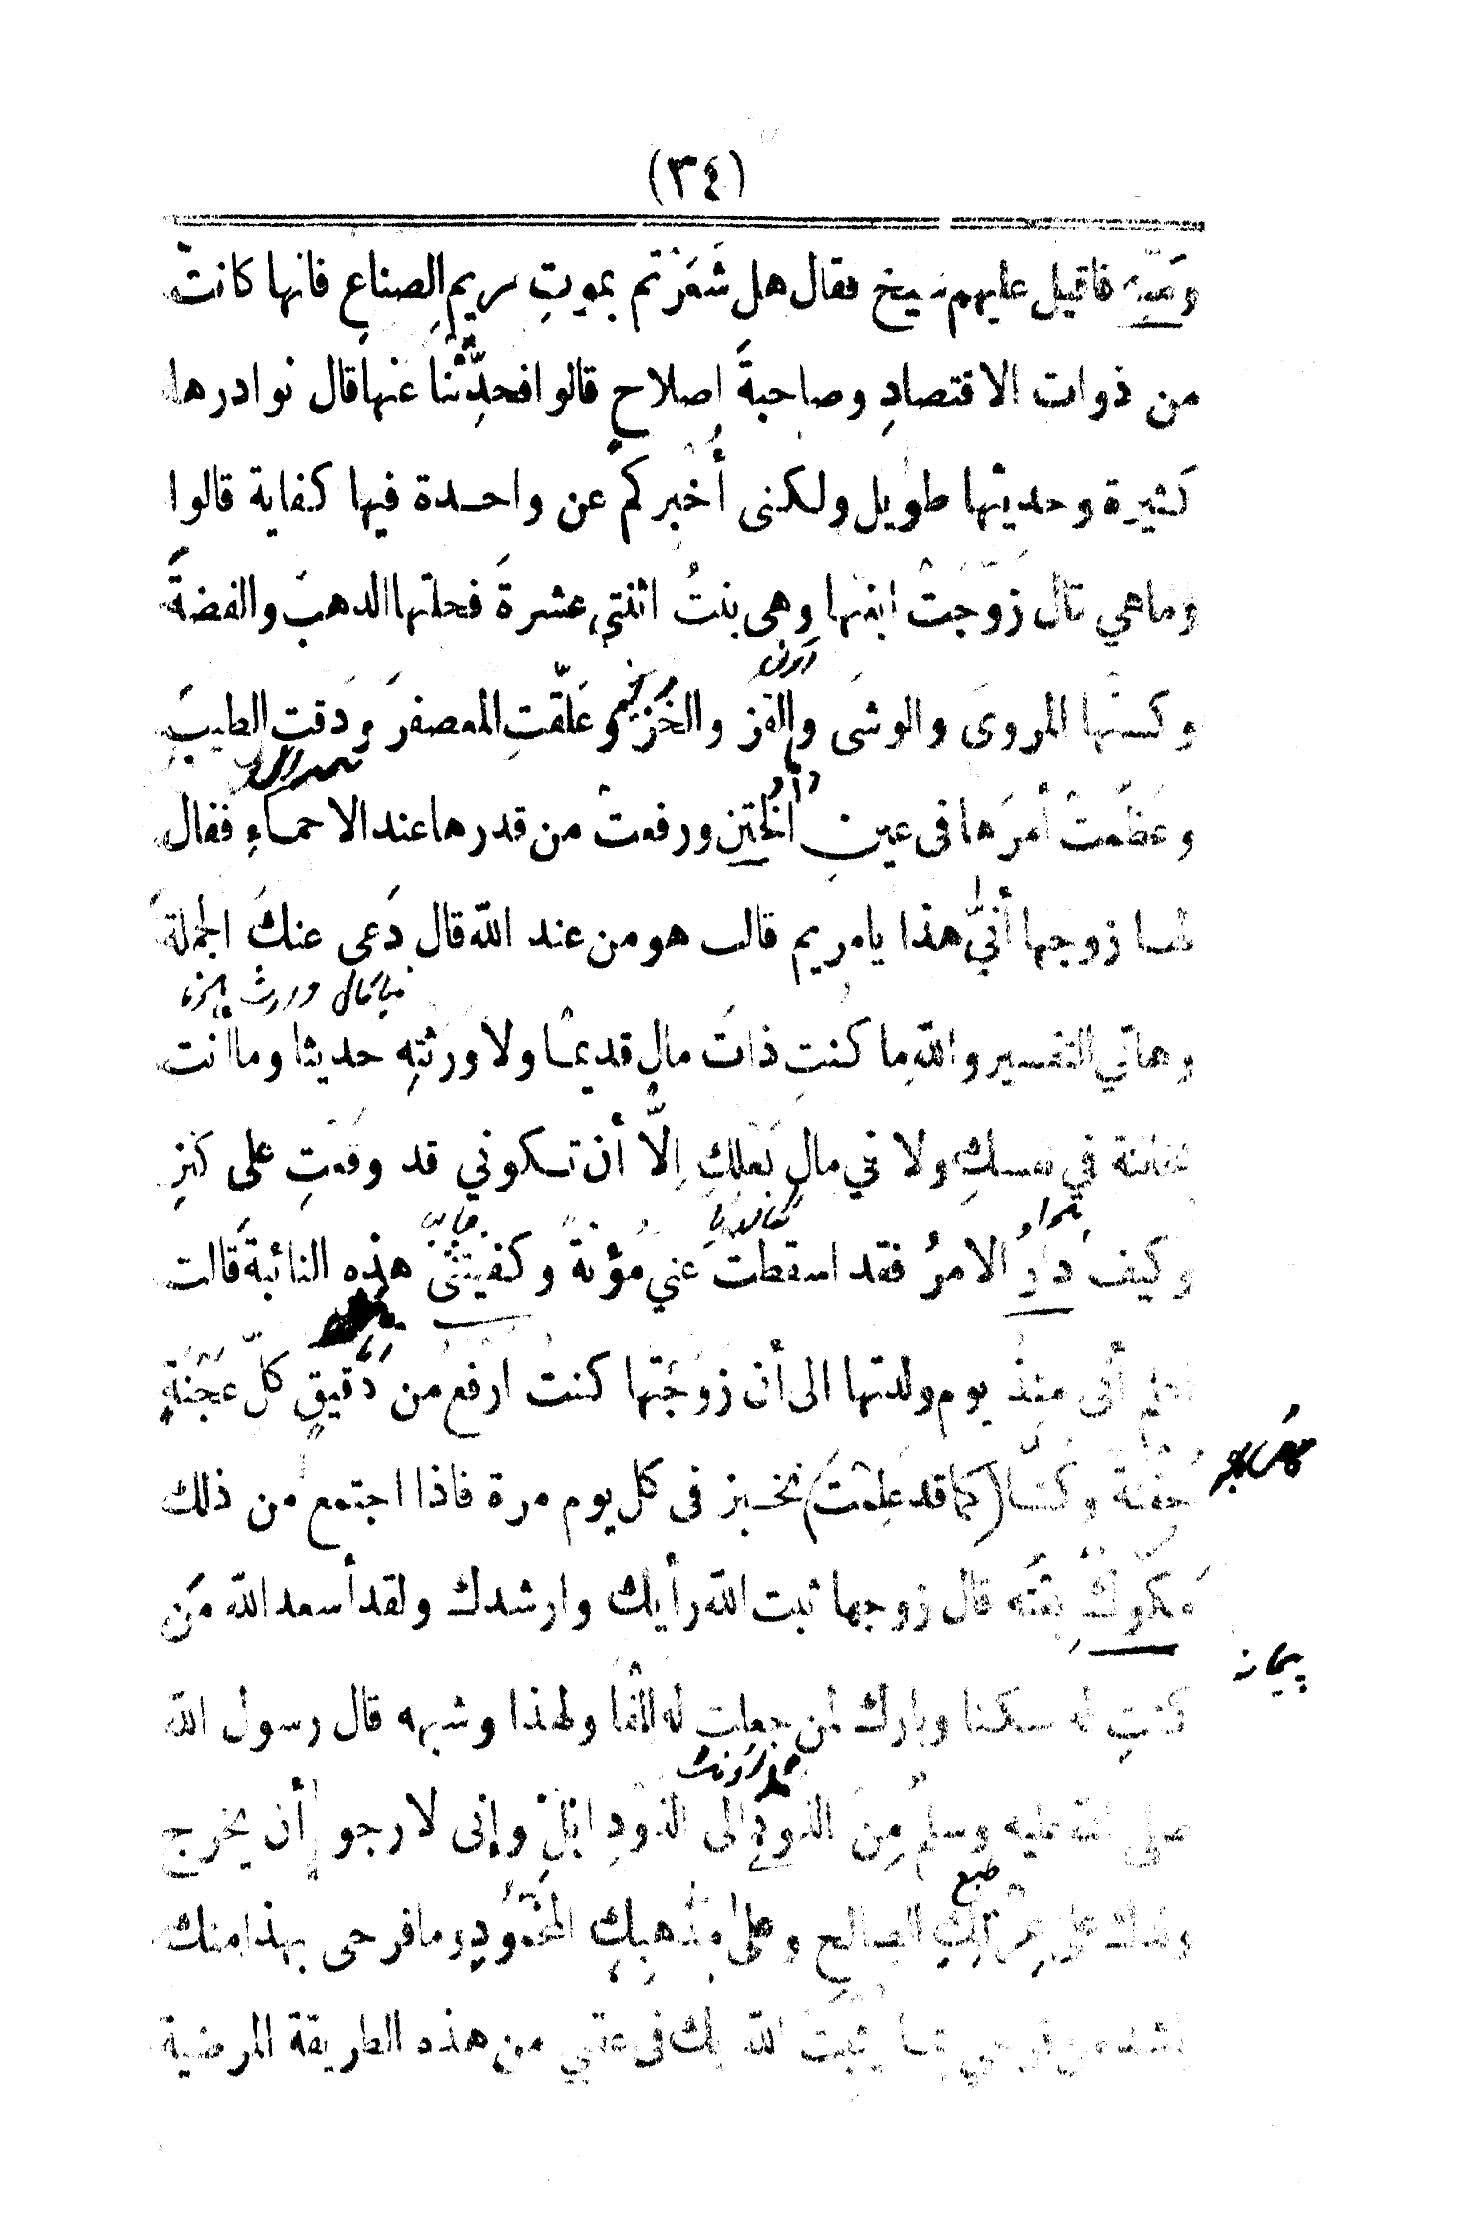 (٣٤)
فاقبل عليهم شيخ فقال هل شَعَرْتم بموتِ مريمِ الصناعِ فانها كانتْ
من ذوات الاقتصادِ وصاحبةَ إصلاحٍ قالوا فحدِّثْنا عنها قال نوادرها
كثيرة وحديثها طويل ولكنى أُخْبركم عن واحدة فيها كفاية قالوا
وماهي قال زَوَّجَتْ ابنتها وهى بنتُ اثنتي عشرةَ فحلتها الذهبَ والفضةَ
وكستْها المروىَ والوشىَ والقز والخَزَّ وعَلَّقتِ المعصفرَ ودَقتِ الطيبَ
وعَظَّمَتْ أمرَها فى عينِ الخَتَنِ ورفعتْ من قدرها عند الاحماءِ فقال
لها زوجها أنَّى هذا يا مريم قالت هو من عند الله قال دَعى عنكِ الجملةَ
وهاتي التفسير والله ما كنتِ ذاتَ مال قديما ولا وَرَثتِه حديثا وما انت
بخائنة في نفسكِ ولا في مالِ بَعْلِكِ إلَّا أن تكوني قد وقَعْتِ على كنزٍ
وكيف دارَ الامرُ فقد اسقطتْ عني مُؤْنةً وكفيتنى هذه النائبةَ قالت
اعلم أنى منذُ يوم ولدتها الى أن زوجَّتها كنتُ ارفع من دَقيقِ كلِّ عَجْنَةٍ
حَفْنَة وكنَّا (كما قد عَلِمْتَ) نخبز فى كل يوم مرة فاذا اجتمع من ذلك
مَكُّوكٌ بِعْتُه قال زوجها ثبت الله رأيك وارشدك ولقد أسعد الله مَن
كنتِ له سكنا وبارك لمن جعلت له إلفا ولهذا وشبهه قال رسول الله
صلى الله عليه وسلم مِنَ الذودِ الى الذودِ إبلٌ وإنى لارجو أن يخرج
ولدك على عِرْقكِ الصالحِ وعلى مذْهبكِ المَحْمُودِ وما فرحى بهذا منك
باشد من فرحي بما يثبتُ الله بك فى عقبي من هذه الطريقة المرضية
پیمانه